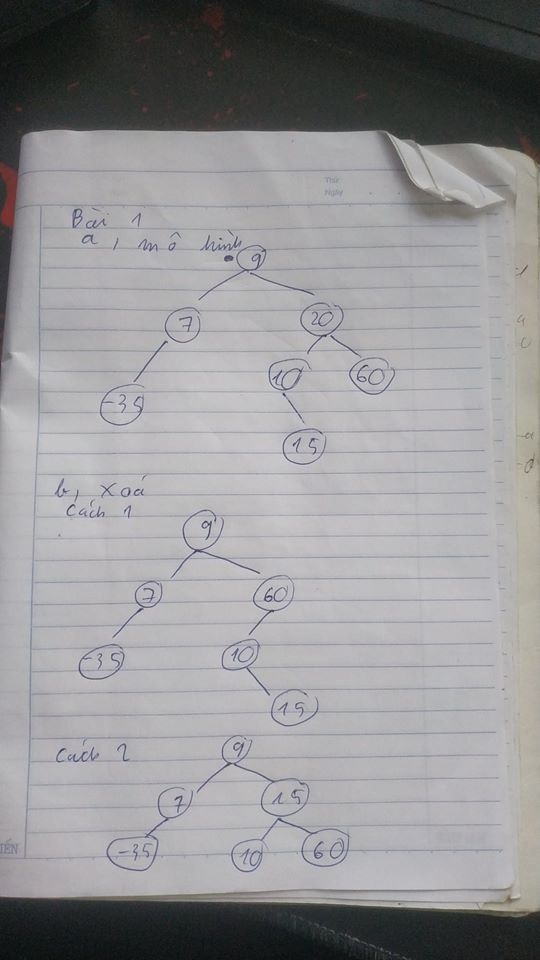 Thứ
Ngày
Bài 1
a, mô hình
9
7 20
-35 10 60
15
b, Xoá
Cách 1
9
7 60
-35 10
15
Cách 2
9
7 15
-35 10 60